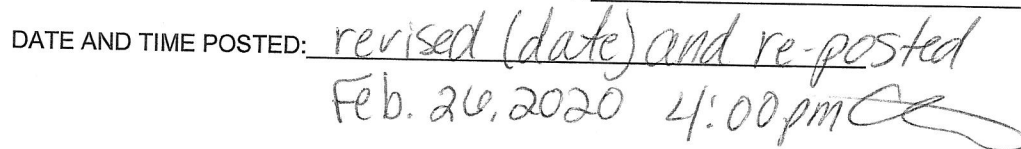 DATE AND TIME POSTED: revised (date) and re-posted
Feb. 26, 2020 4:00pm